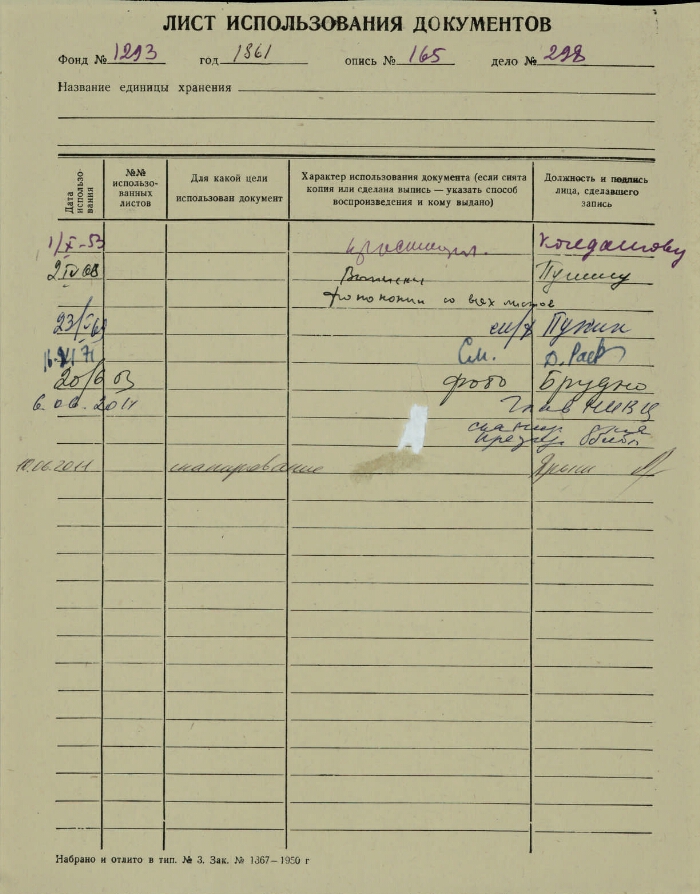 ЛИСТ ИСПОЛЬЗОВАНИЯ ДОКУМЕНТОВ
Фонд № 1293 год 1861 опись № 165 дело № 298
Название единицы хранения
Дата использования
№№ использованных листов
Для какой цели использован документ
Характер использования документа (если снята копия или сделана выпись — указать способ воспроизведения и кому выдано)
Должность и подпись лица, сделавшего запись
1/X-53
2 IV 68
фотокопии со всех листов
23/ 69 Пунин
71 См.
20/6 03 фото Брудно
6.06.2011
10.06.2011 сканирование
Набрано и отлито в тип. № 3. Зак. № 1367—1950 г